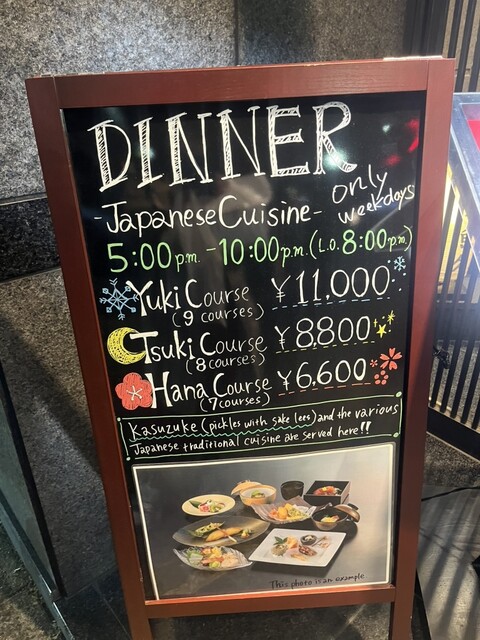 DINNER
only
weekdays
-Japanese Cuisine-
5:00p.m.-10:00p.m.(L.O.8:00p.m.)
Yuki Course ¥11,000
(9 courses)
Tsuki Course ¥8,800
(8 courses)
Hana Course ¥6,600
(7 courses)
Kasuzuke (pickles with sake lees) and the various
Japanese traditional cuisine are served here!!
This photo is an example.